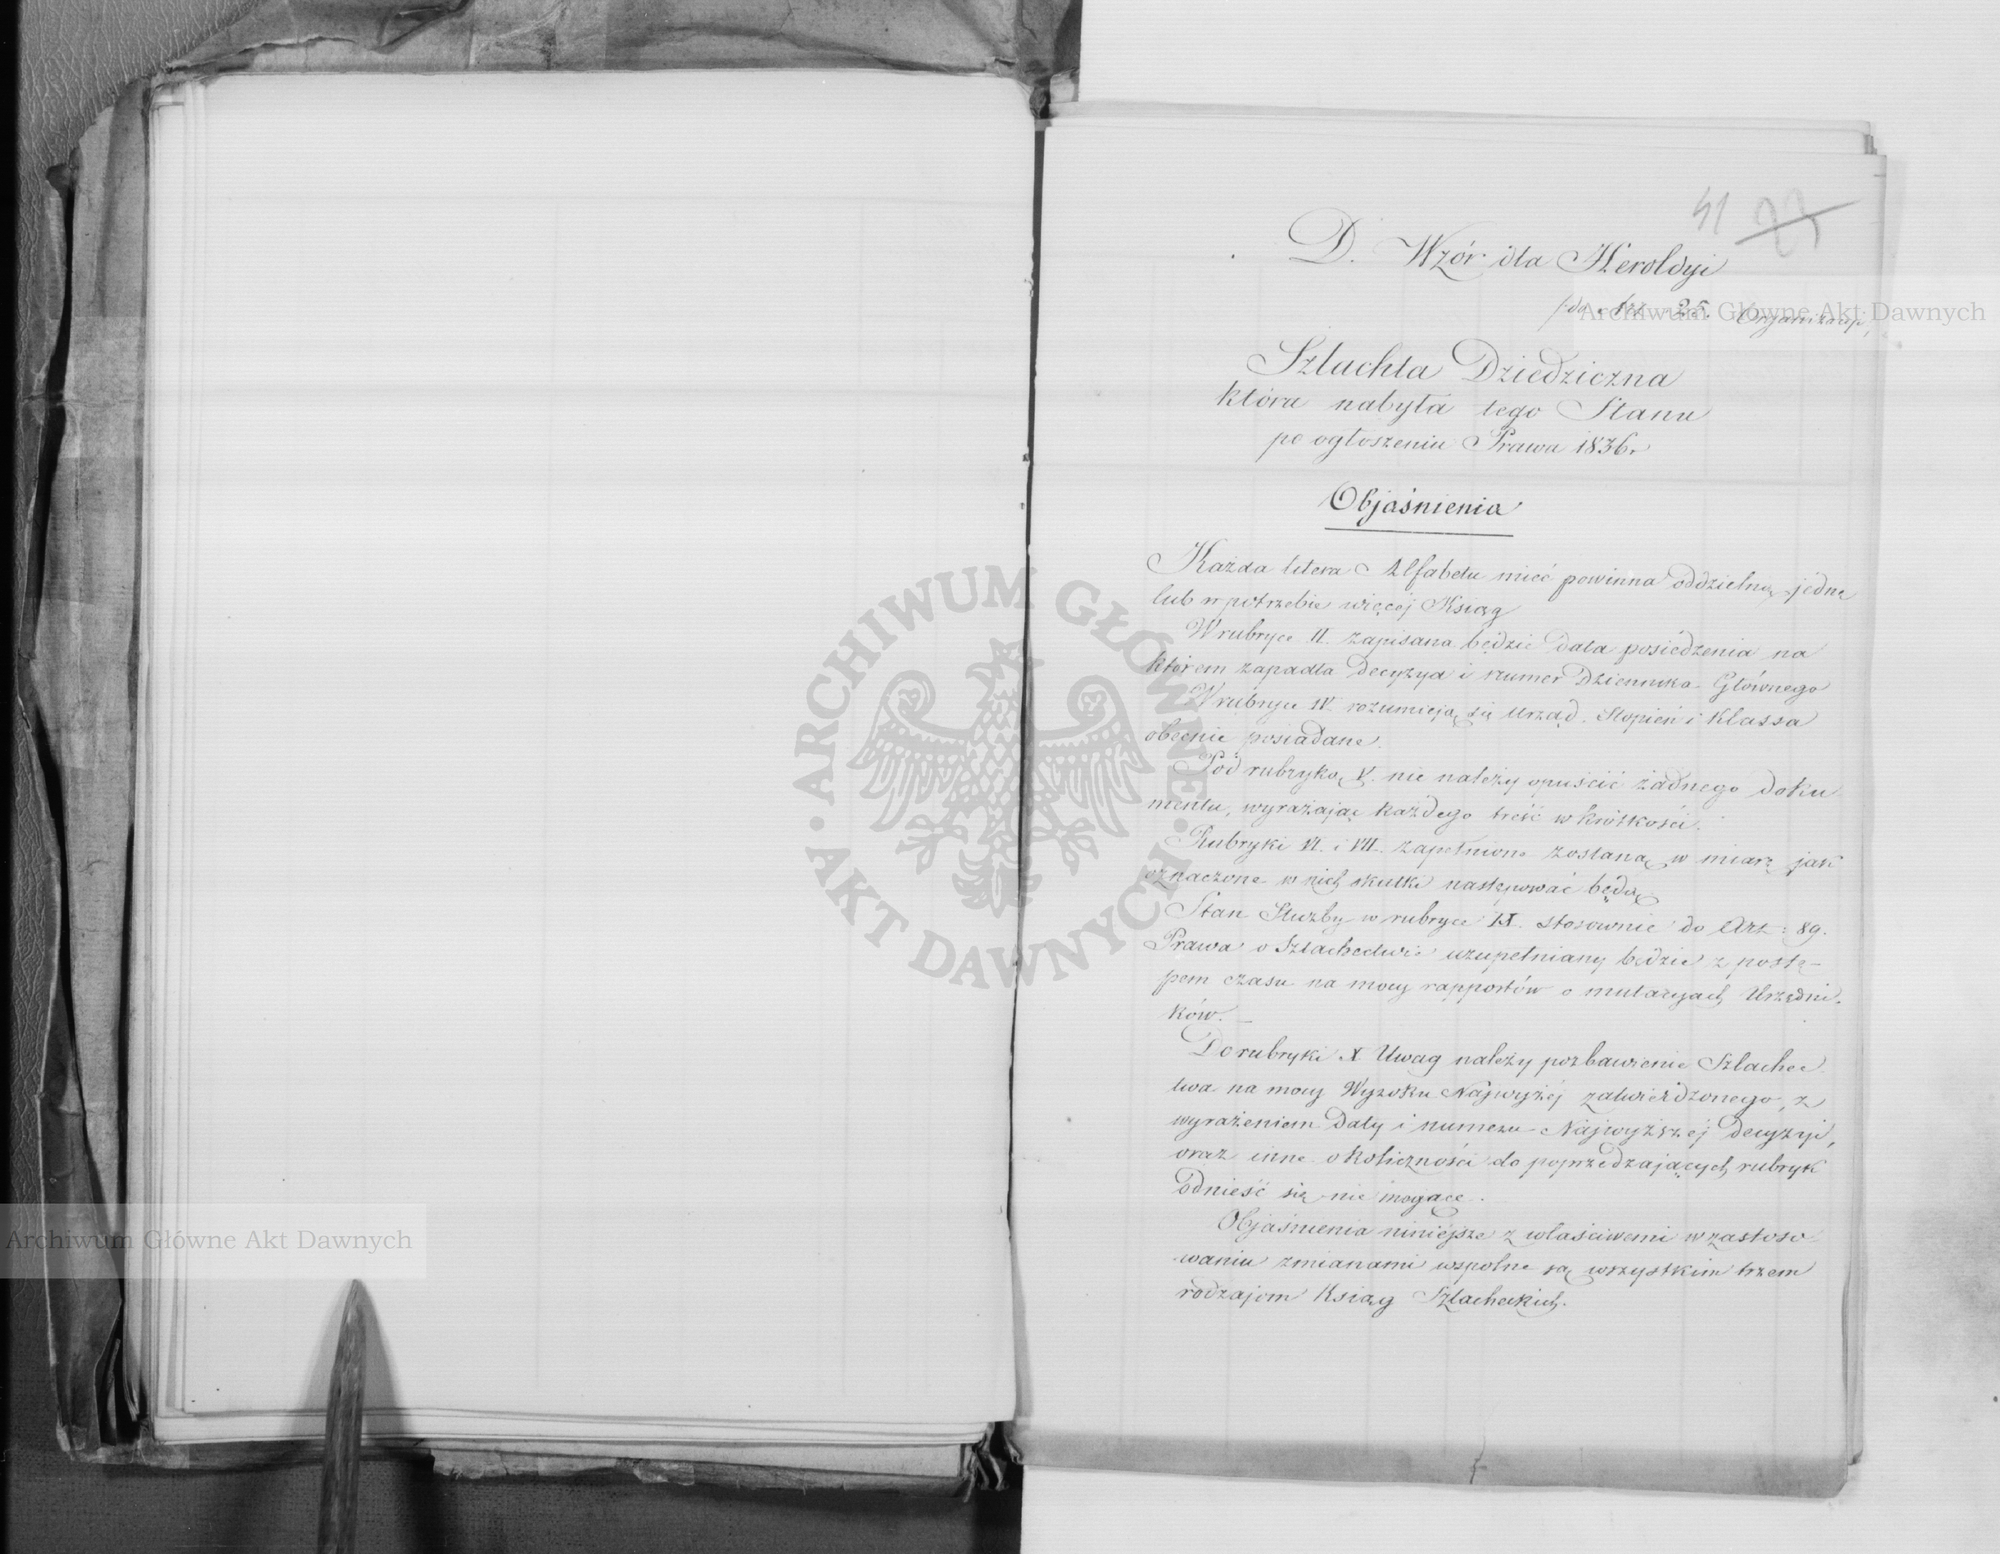 41 27
D. Wzór dla Heroldyi
do Art. 25. Organizacyi,
Szlachta Dziedziczna
która nabyła tego Stanu
po ogłoszeniu Prawa 1836 r
Objaśnienia
Każda litera Alfabetu mieć powinna oddzielną jedną
lub w potrzebie więcéj Ksiąg
W rubryce II. zapisana będzie data posiedzenia na
którem zapadła decyzya i numer Dziennika Głównego
W rubryce IV rozumieją się Urząd. Stopień i Klassa
obecnie posiadane.
Pod rubryką V. nie należy opuścić żadnego doku
mentu, wyrażając każdego treść w krótkości.
Rubryki VI. i VII. zapełnione zostaną w miarę jak
oznaczone w nich skutki następować będą
Stan Służby w rubryce IX. stosownie do Art: 89.
Prawa o Szlachectwie uzupełniany będzie z postę-
pem czasu na mocy rapportów o mutacyach Urzędni-
ków.
Do rubryki X Uwag należy pozbawienie Szlachec
twa na mocy Wyroku Najwyżéj zatwierdzonego, z
wyrażeniem Daty i numeru Najwyższej decyzyi,
oraz inne okoliczności do poprzedzających rubryk
odnieść się nie mogące.
Objaśnienia niniejsze z właściwemi w zastoso
waniu zmianami wspólne są wszystkim trzem
rodzajom Ksiąg Szlacheckich.
Archiwum Główne Akt Dawnych
Archiwum Główne Akt Dawnych
ARCHIWUM GŁÓWNE
AKT DAWNYCH